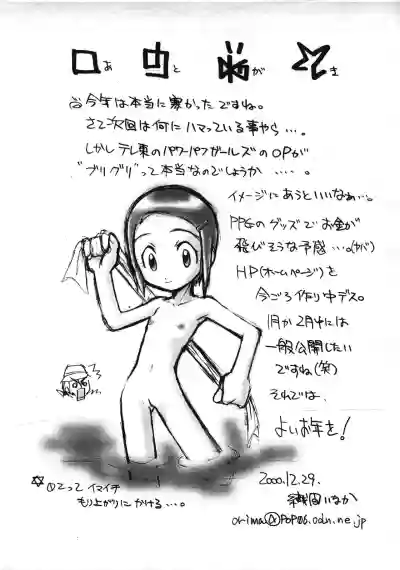 あとがき
今年は本当に寒かったですね。
さて次回は何にハマっている事やら…。
しかしテレ東のパワーパフガールズのOPが
"ブリグリ"って本当なのでしょうか……。
イメージにあうといいなぁ…。
PPGのグッズでお金が
飛びそうな予感…。(ヤバ)
HP(ホームページ)を
今ごろ作り中デス。
1月か2月中には
一般公開したい
ですね(笑)
それでは、
よいお年を!
2000.12.29.
いなか
orima@pop06.odn.ne.jp
イマイチ
もり上がりにかける…。